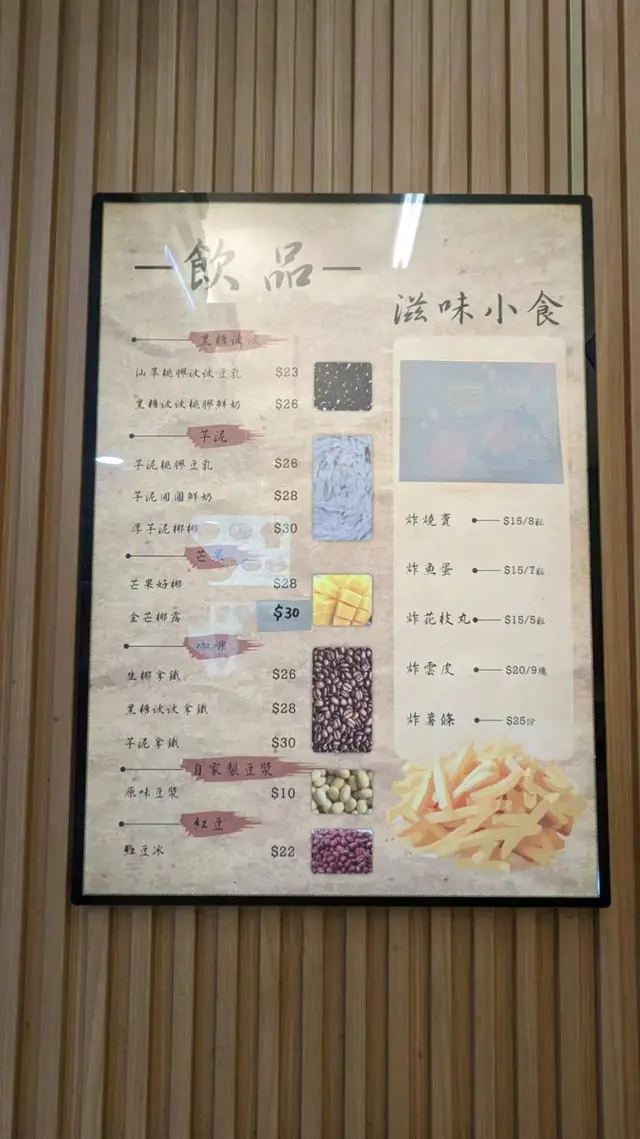 飲品
黑糖波波
仙草桃膠波波豆乳 $23
黑糖波波桃膠鮮奶 $26
芋泥
芋泥桃膠豆乳 $26
芋泥圓圓鮮奶 $28
厚芋泥椰椰 $30
芒果
芒果好椰 $28
金芒椰露 $30
咖啡
生椰拿鐵 $26
黑糖波波拿鐵 $28
芋泥拿鐵 $30
自家製豆漿
原味豆漿 $10
紅豆
紅豆冰 $22
滋味小食
炸燒賣 $15/8粒
炸魚蛋 $15/7粒
炸花枝丸 $15/5粒
炸雲皮 $20/9塊
炸薯條 $25份